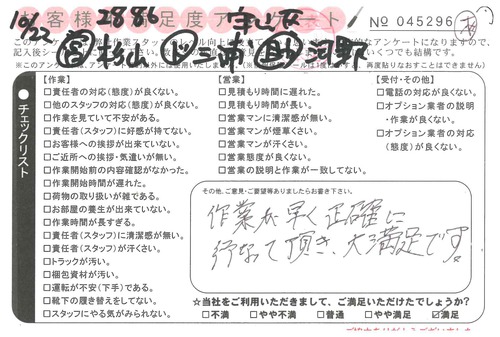 お客様満足度アンケート
№ 045296
10/22
2886
杉山
三浦
河野
チェックリスト
【作業】
□責任者の対応(態度)が良くない。
□他のスタッフの対応(態度)が良くない。
□作業を見ていて不安がある。
□責任者(スタッフ)に好感が持てない。
□お客様への挨拶が出来ていない。
□ご近所への挨拶・気遣いが無い。
□作業開始前の内容確認がなかった。
□作業開始時間が遅れた。
□荷物の取り扱いが雑である。
□お部屋の養生が出来ていない。
□作業時間が長すぎる。
□責任者(スタッフ)に清潔感が無い。
□責任者(スタッフ)が汗くさい。
□トラックが汚い。
□梱包資材が汚い。
□運転が不安(下手)である。
□靴下の履き替えをしてない。
□スタッフにやる気がみられない。
【営業】
□見積もり時間に遅れた。
□見積もり時間が長い。
□営業マンに清潔感が無い。
□営業マンが煙草くさい。
□営業マンが汗くさい。
□営業態度が良くない。
□営業の説明と作業が一致してない。
【受付・その他】
□電話の対応が良くない。
□オプション業者の説明
・作業が良くない。
□オプション業者の対応
(態度)が良くない。
その他、ご意見・ご要望等ありましたらお書き下さい。
作業が早く正確に
行なって頂き、大満足です。
☆当社をご利用いただきまして、ご満足いただけたでしょうか?
□不満 □やや不満 □普通 □やや満足 ☑満足